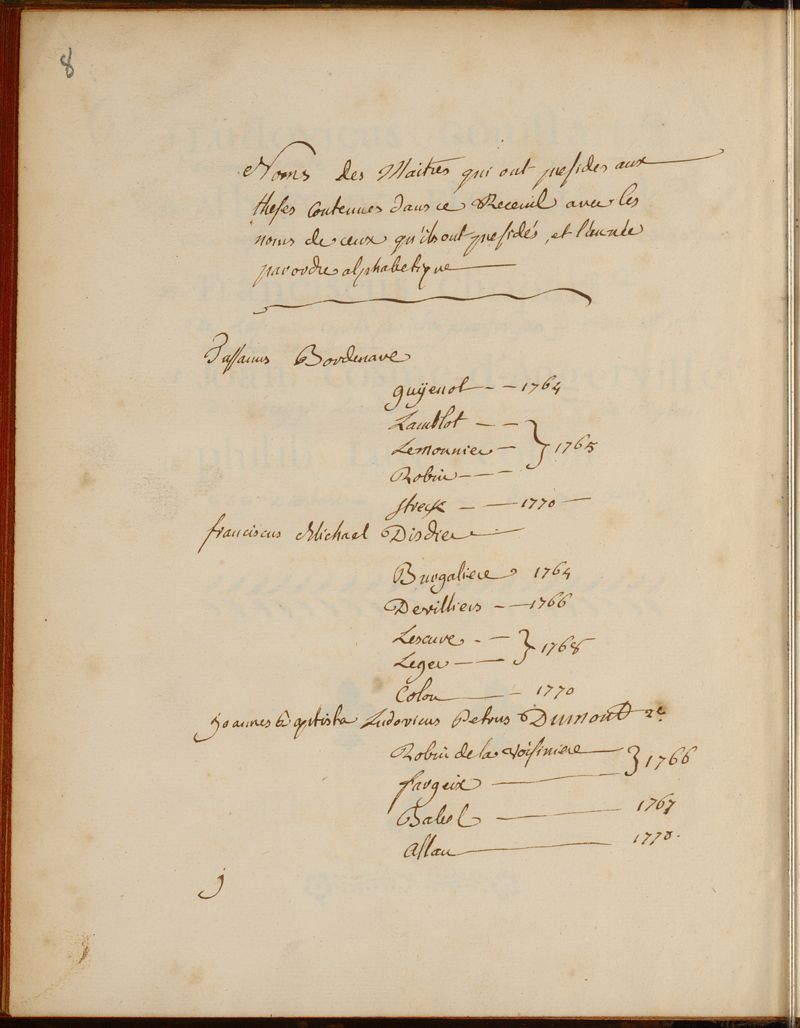 8
Noms des Maitres qui ont presidés aux
theses Contenues dans ce Receuil avec les
noms de ceux qu'ils ont presidés, et l'année
par ordre alphabetique
Tussanus Bordenave
guÿenot - - 1764
Lamblot - -
Lemonnier - } 1765
Robin - - -
Streck - - 1770 -
franciscus Michael Disdier
Burgaliere 1764
Devilliers - - 1766
Lescure - -
Leger - - } 1768
Colon - 1770
Joannes Baptista Ludovicus Petrus Dumont 2e.
Robin de la Voisiniere
fargeix } 1766
Babel 1767
Allan 1770.